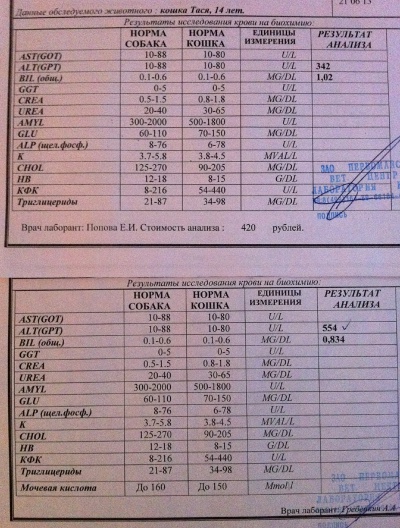 21 06 13
Данные обследуемого животного : кошка Тася, 14 лет.
Результаты исследования крови на биохимию:
НОРМА СОБАКА НОРМА КОШКА ЕДИНИЦЫ ИЗМЕРЕНИЯ РЕЗУЛЬТАТ АНАЛИЗА
AST(GOT) 10-88 10-80 U/L
ALT(GPT) 10-88 10-80 U/L 342
BIL (общ.) 0.1-0.6 0.1-0.6 MG/DL 1,02
GGT 0-5 0-5 U/L
CREA 0.5-1.5 0.8-1.8 MG/DL
UREA 20-40 30-65 MG/DL
AMYL 300-2000 500-1800 U/L
GLU 60-110 70-150 MG/DL
ALP (щел.фосф.) 8-76 6-78 U/L
K 3.7-5.8 3.8-4.5 MVAL/L
CHOL 125-270 90-205 MG/DL
HB 12-18 8-15 G/DL
КФК 8-216 54-440 U/L
Триглицериды 21-87 34-98 MG/DL
ЗАО ПЕРВОМАЙС
ВЕТ ЦЕНТР
ЛАБОРАТОРИЯ
подпись
Врач лаборант: Попова Е.И. Стоимость анализа : 420 рублей.
Результаты исследования крови на биохимию:
НОРМА СОБАКА НОРМА КОШКА ЕДИНИЦЫ ИЗМЕРЕНИЯ РЕЗУЛЬТАТ АНАЛИЗА
AST(GOT) 10-88 10-80 U/L
ALT(GPT) 10-88 10-80 U/L 554 ✓
BIL (общ.) 0.1-0.6 0.1-0.6 MG/DL 0,834
GGT 0-5 0-5 U/L
CREA 0.5-1.5 0.8-1.8 MG/DL
UREA 20-40 30-65 MG/DL
AMYL 300-2000 500-1800 U/L
GLU 60-110 70-150 MG/DL
ALP (щел.фосф.) 8-76 6-78 U/L
K 3.7-5.8 3.8-4.5 MVAL/L
CHOL 125-270 90-205 MG/DL
HB 12-18 8-15 G/DL
КФК 8-216 54-440 U/L
Триглицериды 21-87 34-98 MG/DL
Мочевая кислота До 160 До 150 Mmol\l
ЗАО
ВЕТ
Врач лаборант: Гребенкин А.А